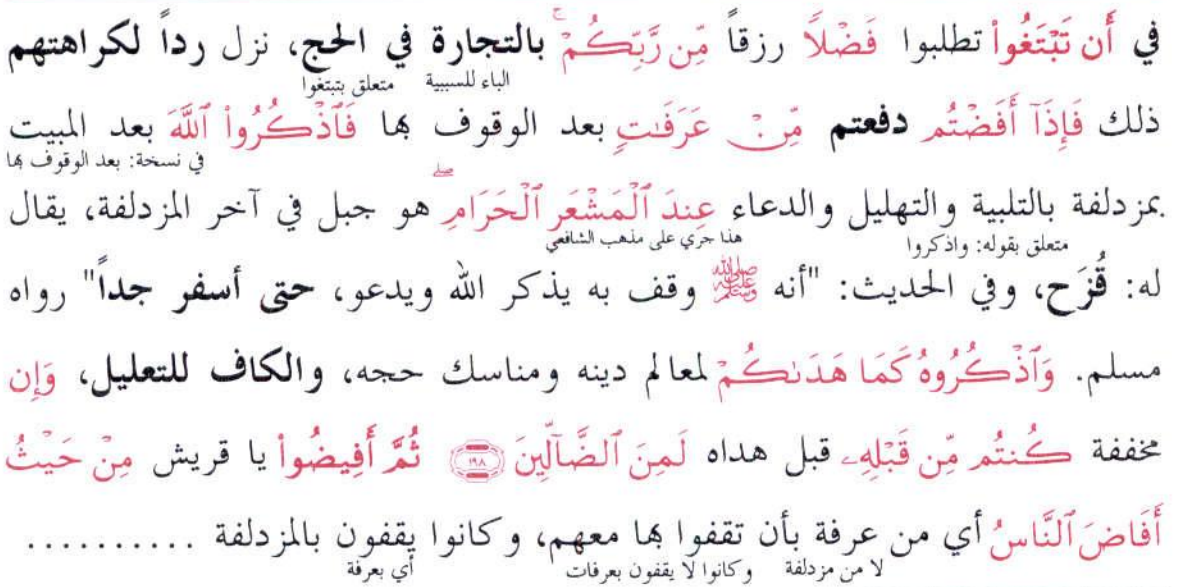 في أَن تَبْتَغُواْ تطلبوا فَضْلًا رزقاً مِّن رَّبِّكُمْ ۚ بالتجارة في الحج، نزل رداً لكراهتهم
الباء للسببية متعلق بتبتغوا
ذلك فَإِذَآ أَفَضْتُم دفعتم مِّنْ عَرَفَٰتٍ بعد الوقوف بها فَٱذْكُرُواْ ٱللَّهَ بعد المبيت
في نسخة: بعد الوقوف بها
بمزدلفة بالتلبية والتهليل والدعاء عِندَ ٱلْمَشْعَرِ ٱلْحَرَامِ ۖ هو جبل في آخر المزدلفة، يقال
متعلق بقوله: واذكروا هذا جري على مذهب الشافعي
له: قُزَح، وفي الحديث: "أنه ﷺ وقف به يذكر الله ويدعو، حتى أسفر جداً" رواه
مسلم. وَٱذْكُرُوهُ كَمَا هَدَىٰكُمْ لمعالم دينه ومناسك حجه، والكاف للتعليل، وَإِن
مخففة كُنتُم مِّن قَبْلِهِۦ قبل هداه لَمِنَ ٱلضَّآلِّينَ ١٩٨ ثُمَّ أَفِيضُواْ يا قريش مِنْ حَيْثُ
أَفَاضَ ٱلنَّاسُ أي من عرفة بأن تقفوا بها معهم، وكانوا يقفون بالمزدلفة ..........
لا من مزدلفة وكانوا لا يقفون بعرفات أي بعرفة